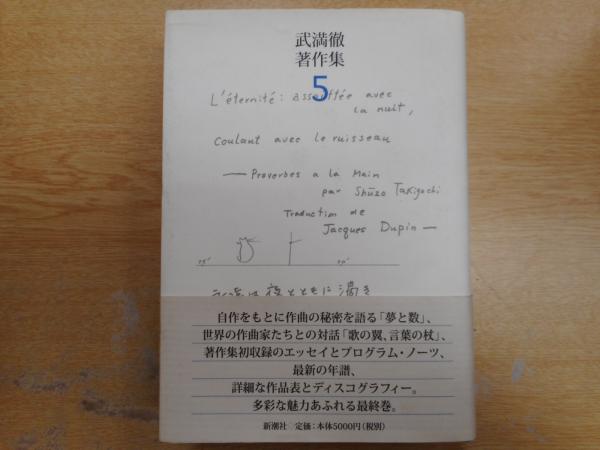 武満徹
著作集
5
L'éternité: assoiffée avec
la nuit,
coulant avec le ruisseau
— Proverbes a la Main
par Shūzo Takiguchi
Traduction de
Jacques Dupin —
永遠は夜とともに渇き
自作をもとに作曲の秘密を語る「夢と数」、
世界の作曲家たちとの対話「歌の翼、言葉の杖」、
著作集初収録のエッセイとプログラム・ノーツ、
最新の年譜、
詳細な作品表とディスコグラフィー。
多彩な魅力あふれる最終巻。
新潮社 定価:本体5000円(税別)